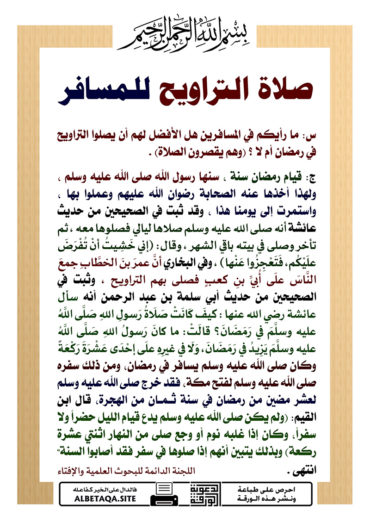 بسم الله الرحمن الرحيم
صلاة التراويح للمسافر
س: ما رأيكم في المسافرين هل الأفضل لهم أن يصلوا التراويح
في رمضان أم لا ؟ (وهم يقصرون الصلاة) .
ج: قيام رمضان سنة ، سنها رسول الله صلى الله عليه وسلم ،
ولهذا أخذها عنه الصحابة رضوان الله عليهم وعملوا بها ،
واستمرت إلى يومنا هذا ، وقد ثبت في الصحيحين من حديث
عائشة أنه صلى الله عليه وسلم صلاها ليالي فصلوها معه ، ثم
تأخر وصلى في بيته باقي الشهر ، وقال: (إني خَشِيتُ أنْ تُفْرَضَ
علَيْكُم، فَتَعْجِزُوا عَنْها) ، وفي البخاري أنَّ عمرَ بنَ الخطَّابِ جمعَ
النَّاسَ علَى أُبَيِّ بنِ كعبٍ فصلى بهم التراويح ، وثبت في
الصحيحين من حديث أبي سلمة بن عبد الرحمن أنه سأل
عائشة رضي الله عنها : كيفَ كَانَتْ صَلَاةُ رَسولِ اللهِ صَلَّى اللَّهُ
عليه وسلَّمَ في رَمَضَانَ؟ قالَتْ: ما كانَ رَسولُ اللهِ صَلَّى اللَّهُ
عليه وسلَّمَ يَزِيدُ في رَمَضَانَ، وَلَا في غيرِهِ علَى إحْدَى عَشْرَةَ رَكْعَةً
وكان صلى الله عليه وسلم يسافر في رمضان، ومن ذلك سفره
صلى الله عليه وسلم لفتح مكة، فقد خرج صلى الله عليه وسلم
لعشر مضين من رمضان في سنة ثـمـان من الهجرة، قال ابن
القيم: (ولم يكن صلى الله عليه وسلم يدع قيام الليل حضراً ولا
سفراً، وكان إذا غلبه نوم أو وجع صلى من النهار اثنتي عشرة
ركعة) وبذلك يتبين أنهم إذا صلوها في سفر فقد أصابوا السنة-
انتهى . اللجنة الدائمة للبحوث العلمية والإفتاء
احرص على طباعة
ونشر هـذه الورقـة
الدعوية
الورقة
فالدال على الخير كفاعله
ALBETAQA.SITE